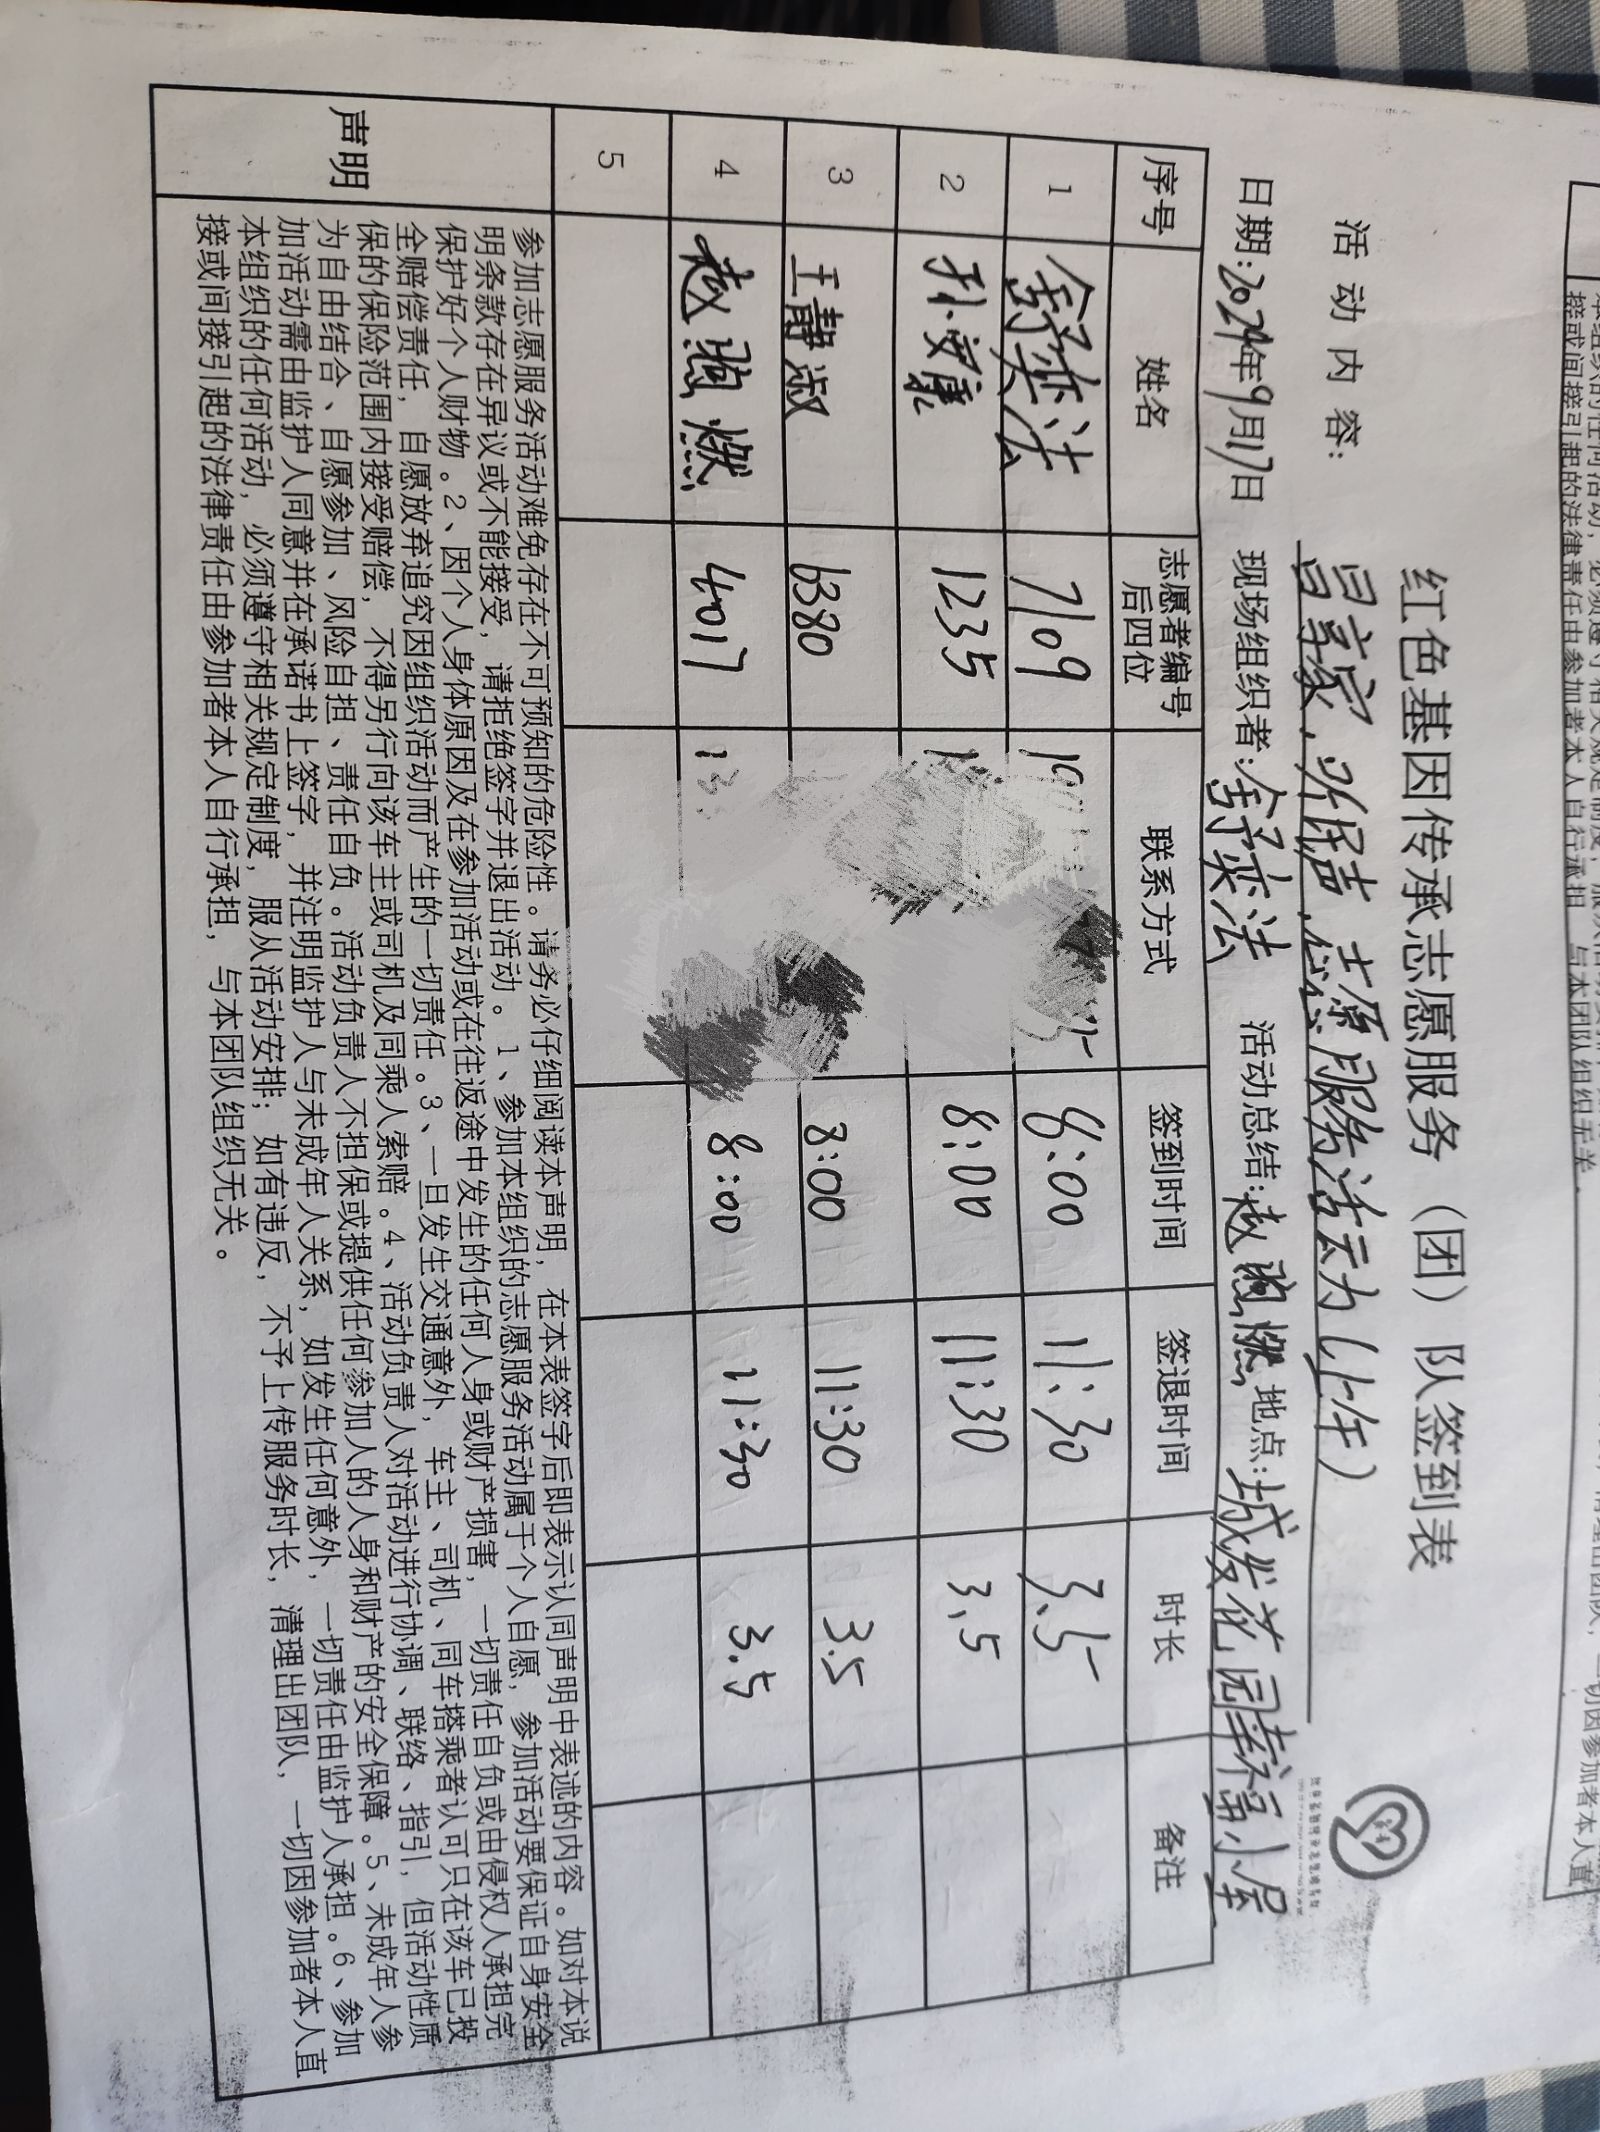 红色基因传承志愿服务（团）队签到表
活动内容：吕家院，听民声，志愿服务活动（上午）
日期：2024年9月17日 现场组织者：奕法 活动总结：赵燃 地点：城发花园幸福小屋
序号 姓名 志愿者编号后四位 联系方式 签到时间 签退时间 时长 备注
1 奕法 7109 8:00 11:30 3.5
2 孙安康 1235 8:00 11:30 3.5
3 王静淑 6380 8:00 11:30 3.5
4 赵燃 4017 13 8:00 11:30 3.5
5
声明
参加志愿服务活动难免存在不可预知的危险性。请务必仔细阅读本声明，在本表签字后即表示认同声明中表述的内容。如对本说
明条款存在异议或不能接受，请拒绝签字并退出活动。1、参加本组织的志愿服务活动属于个人自愿，参加活动要保证自身安全
保护好个人财物。2、因个人身体原因及在参加活动或在往返途中发生的任何人身或财产损害，一切责任自负或由侵权人承担完
全赔偿责任，自愿放弃追究因组织活动而产生的一切责任。3、一旦发生交通意外，车主、司机、同车搭乘者认可只在该车已投
保的保险范围内接受赔偿，不得另行向该车主或司机及同乘人索赔。4、活动负责人对活动进行协调、联络、指引，但活动性质
为自由结合、自愿参加、风险自担、责任自负。活动负责人不担保或提供任何参加人的人身和财产的安全保障。5、未成年人参
加活动需由监护人同意并在承诺书上签字，并注明监护人与未成年人关系，如发生任何意外，一切责任由监护人承担。6、参加
本组织的任何活动，必须遵守相关规定制度，服从活动安排；如有违反，不予上传服务时长，清理出团队，一切因参加者本人直
接或间接引起的法律责任由参加者本人自行承担，与本团队组织无关。
接或间接引起的法律责任由参加者本人自行承担，与本团队组织无关。